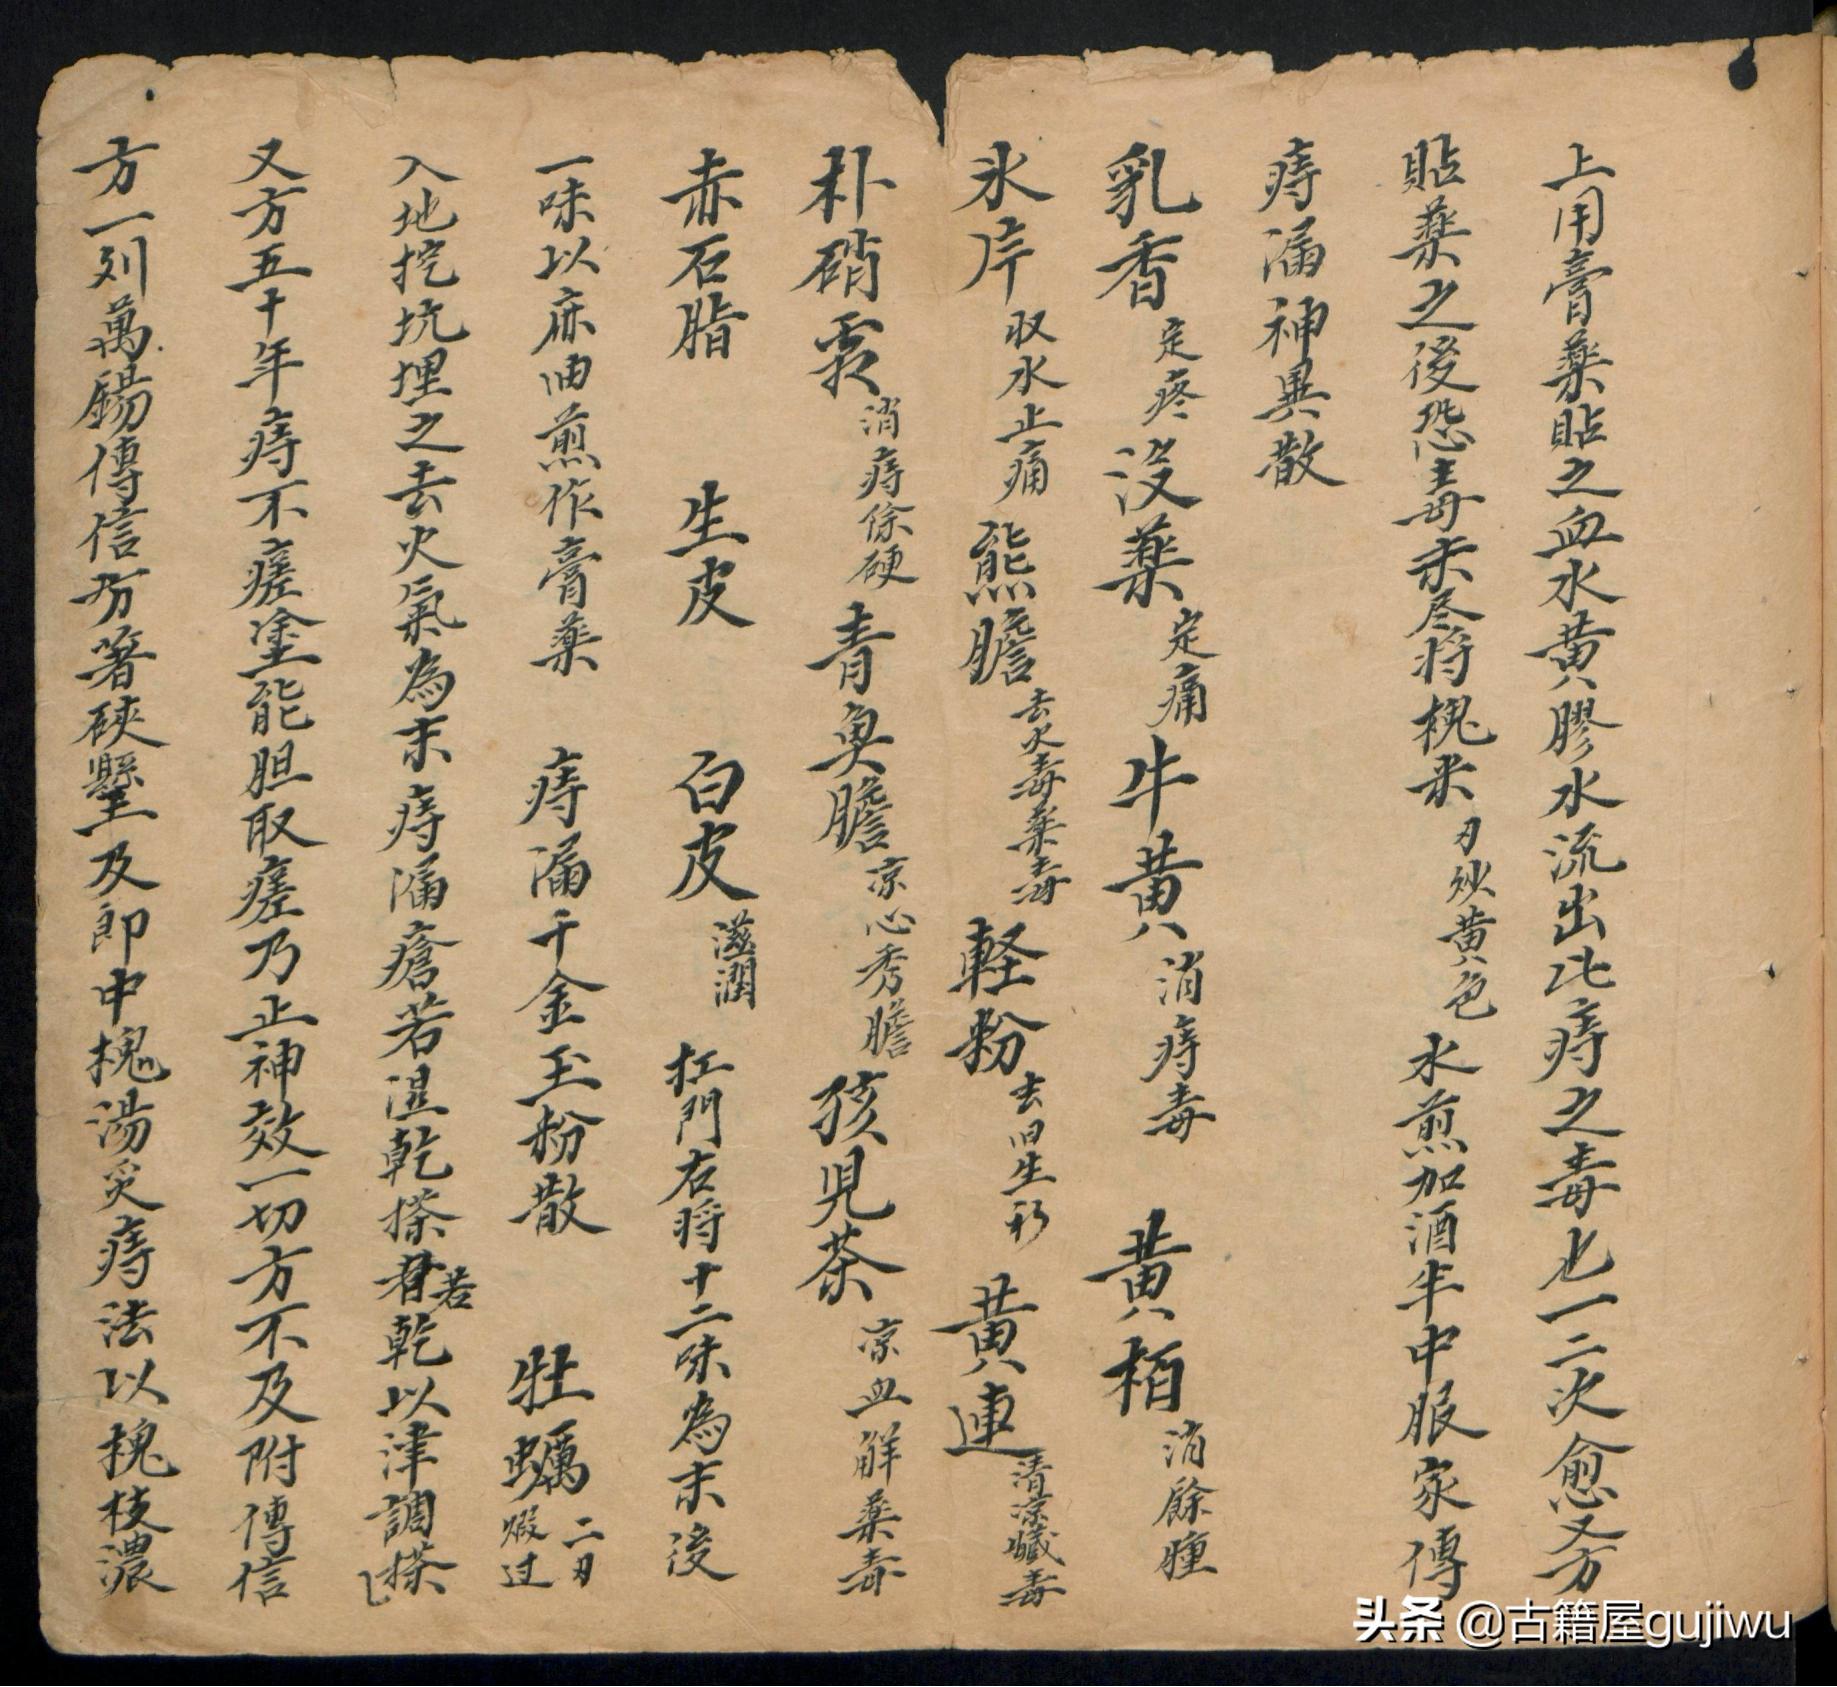 上用膏藥貼之血水黄膠水流出比痔之毒也一二次愈又方
貼藥之後恐毒未尽将槐米刃炒黄色水煎加酒半中服家傳
痔漏神異散
乳香定疼没藥定痛牛黄消痔毒黄栢消餘腫
氷片収水止痛熊膽去火毒藥毒軽粉去旧生形黄連清凉臟毒
朴硝霜消痔餘硬青魚膽凉心秀膽孩児茶凉血解薬毒
赤石脂生皮白皮滋潤肛門右将十二味為末後
一味以麻油煎作膏藥痔漏千金玉粉散牡蠣二刃煆过
入地挖坑埋之去火氣為末痔漏瘡若湿乾搽若乾以津調搽
又方五十年痔不瘥塗熊胆取瘥乃止神效一切方不及附傳信
方一列萬錫傳信方箸硖懸王及郎中槐湯灸痔法以槐枝濃
头条 @古籍屋gujiwu